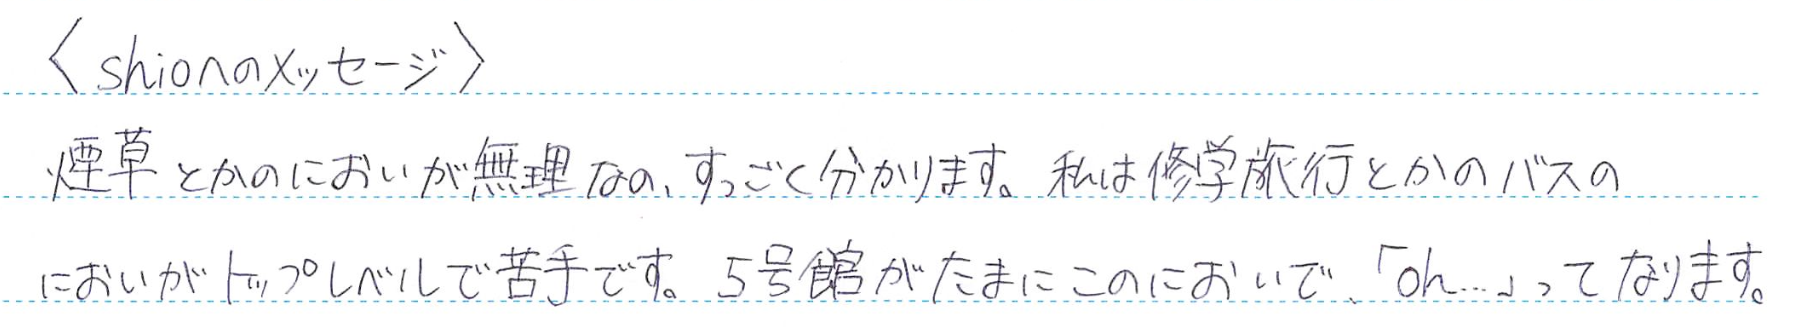 〈shionへのメッセージ〉
煙草とかのにおいが無理なの、すっごく分かります。私は修学旅行とかのバスの
においがトップレベルで苦手です。5号館がたまにこのにおいで、「oh…」ってなります。